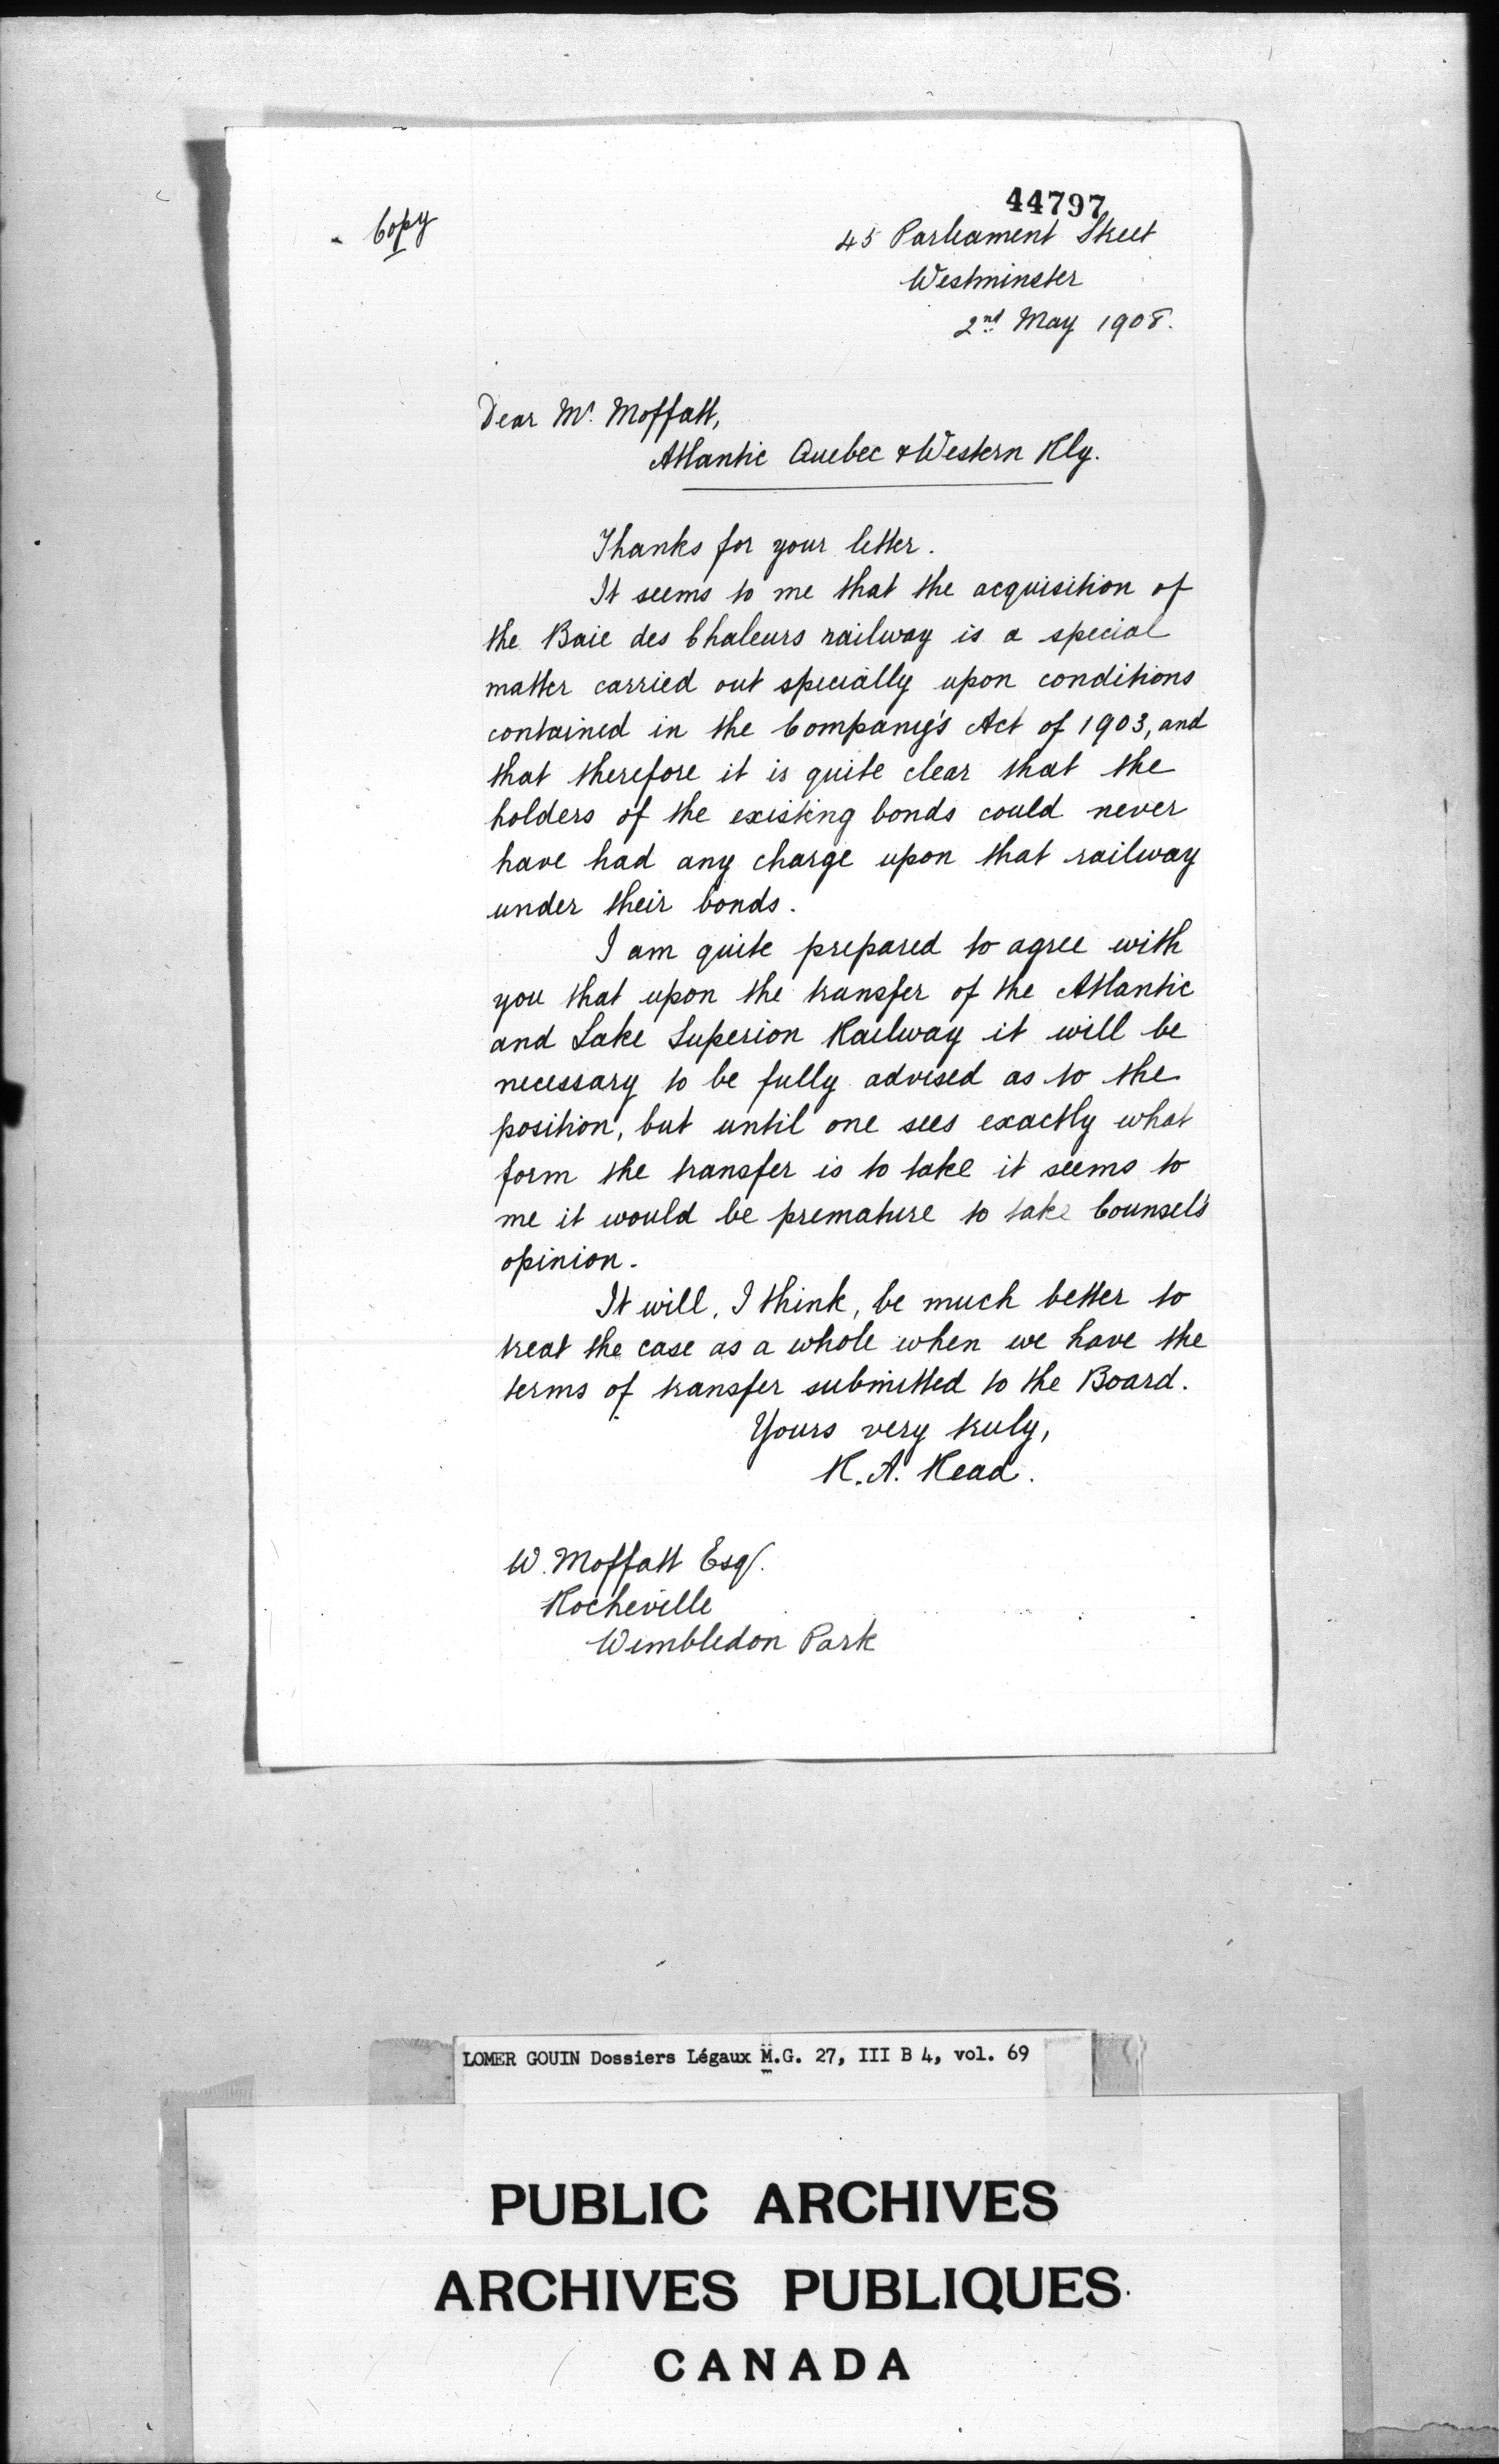 44797
Copy
45 Parliament Street
Westminster
2nd May 1908.
Dear Mr. Moffatt,
Atlantic Quebec & Western Rly.
Thanks for your letter.
It seems to me that the acquisition of
the Baie des Chaleurs railway is a special
matter carried out specially upon conditions
contained in the Company's Act of 1903, and
that therefore it is quite clear that the
holders of the existing bonds could never
have had any charge upon that railway
under their bonds.
I am quite prepared to agree with
you that upon the transfer of the Atlantic
and Lake Superior Railway it will be
necessary to be fully advised as to the
position, but until one sees exactly what
form the transfer is to take it seems to
me it would be premature to take Counsel's
opinion.
It will, I think, be much better to
treat the case as a whole when we have the
terms of transfer submitted to the Board.
Yours very truly,
R. A. Read.
W. Moffatt Esq.
Rocheville
Wimbledon Park
LOMER GOUIN Dossiers Légaux M.G. 27, III B 4, vol. 69
PUBLIC ARCHIVES
ARCHIVES PUBLIQUES
CANADA